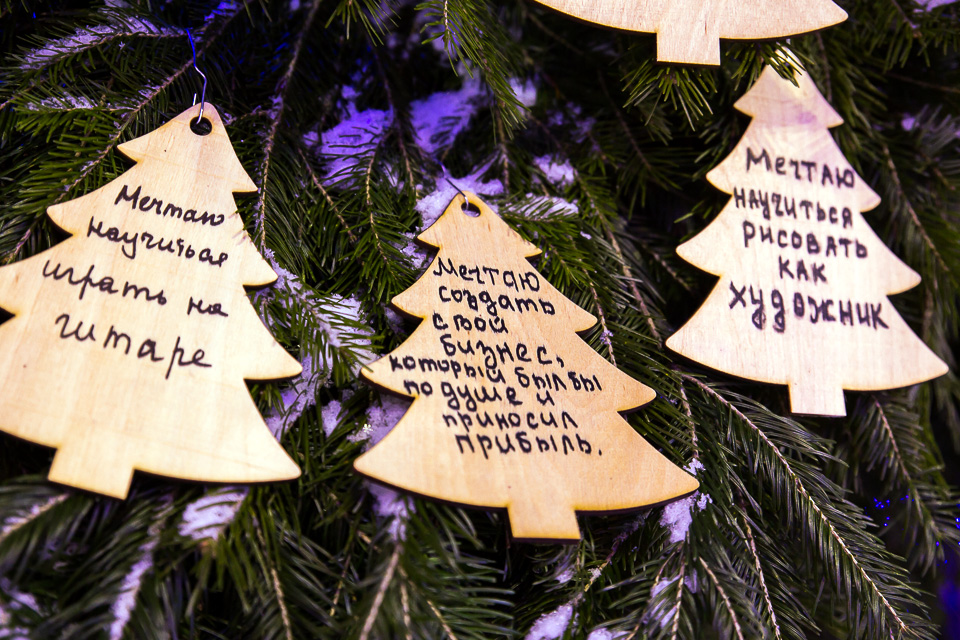 Мечтаю
научиться
играть на
гитаре
Мечтаю
создать
свой
бизнес,
который был бы
по душе и
приносил
прибыль.
Мечтаю
научиться
рисовать
как
художник